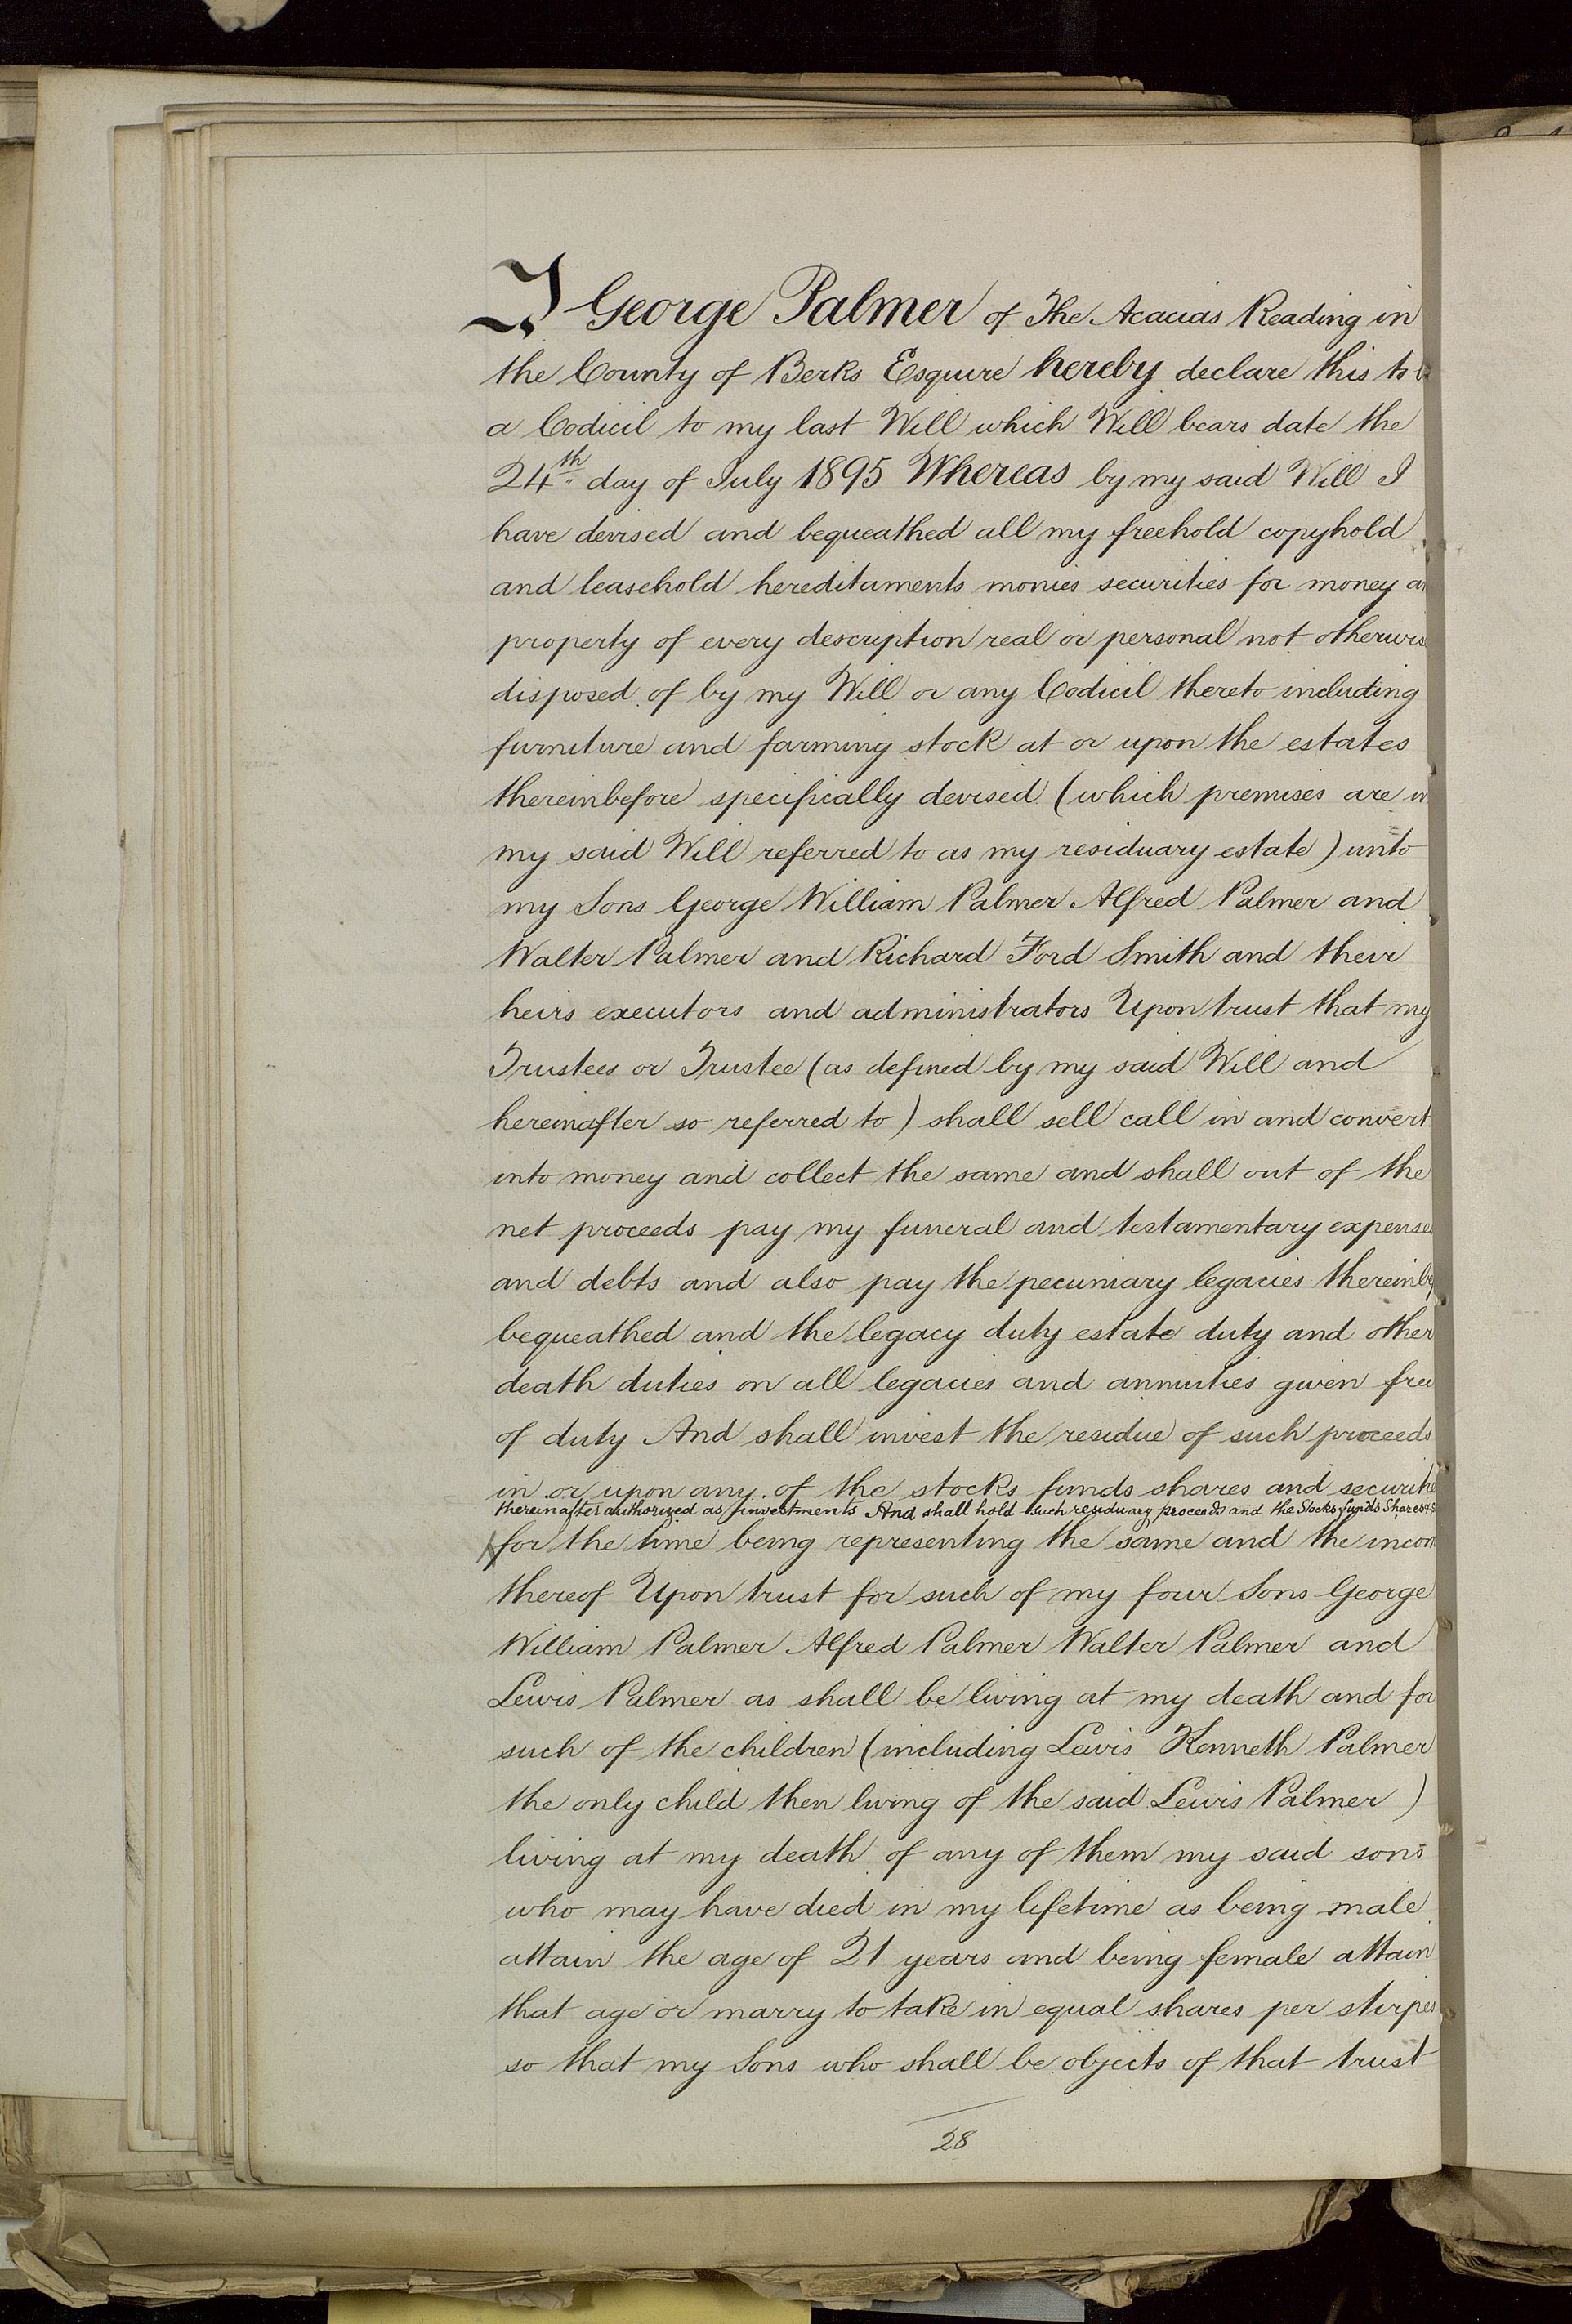 I George Palmer of The Acacias Reading in
the County of Berks Esquire hereby declare this to be
a Codicil to my last Will which Will bears date the
24th day of July 1895 Whereas by my said Will I
have devised and bequeathed all my freehold copyhold
and leasehold hereditaments monies securities for money an
property of every description real or personal not otherwis
disposed of by my Will or any Codicil thereto including
furniture and farming stock at or upon the estates
thereinbefore specifically devised (which premises are in
my said Will referred to as my residuary estate) unto
my Sons George William Palmer Alfred Palmer and
Walter Palmer and Richard Ford Smith and their
heirs executors and administrators Upon trust that my
Trustees or Trustee (as defined by my said Will and
hereinafter so referred to) shall sell call in and convert
into money and collect the same and shall out of the
net proceeds pay my funeral and testamentary expenses
and debts and also pay the pecuniary legacies thereinby
bequeathed and the legacy duty estate duty and other
death duties on all legacies and annuities given free
of duty And shall invest the residue of such proceeds
in or upon any of the stocks funds shares and securitie
thereinafter authorized as investments And shall hold such residuary proceeds and the Stocks funds Shares &
for the time being representing the same and the incom
thereof Upon trust for such of my four Sons George
William Palmer Alfred Palmer Walter Palmer and
Lewis Palmer as shall be living at my death and for
such of the children (including Lewis Kenneth Palmer
the only child then living of the said Lewis Palmer)
living at my death of any of them my said sons
who may have died in my lifetime as being male
attain the age of 21 years and being female attain
that age or marry to take in equal shares per stirpes
so that my Sons who shall be objects of that trust
28